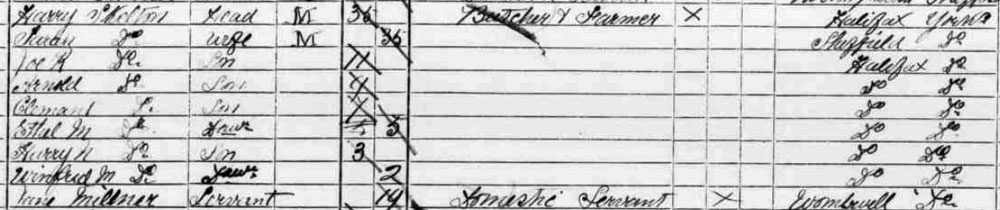 Harry Skelton Head M 36 Butcher & Farmer X Halifax Yorks
Do Wife M 36 Sheffield Do
Joe Do Son 11 Halifax Do
Arnold Do Son Do Do
Clement Do Son Do Do
Ethel M Do Daur 5 Do Do
Harry Do Son 3 Do Do
Winifred M Do Daur 2 Do Do
Jane Millner Servant 19 Domestic Servant X Wombwell Do